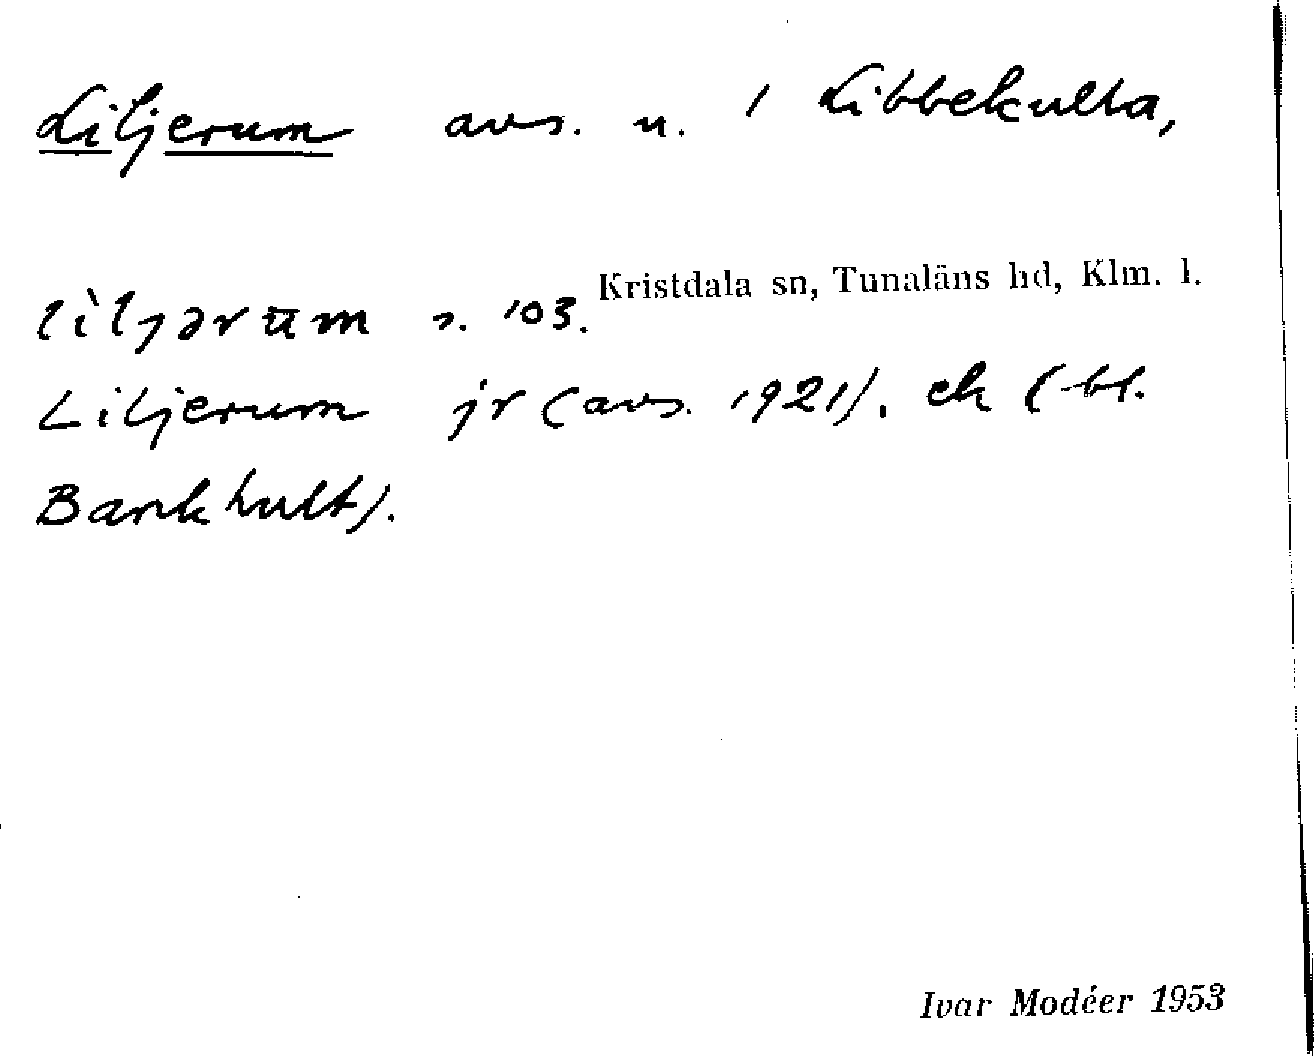 Liljerum avs. u. 1 Libbekulla,
Kristdala sn, Tunaläns hd, Klm. l.
lìljərum s. '03.
Liljerum jr (avs. 1921). ek (bl.
Bankhult).
Ivar Modéer 1953